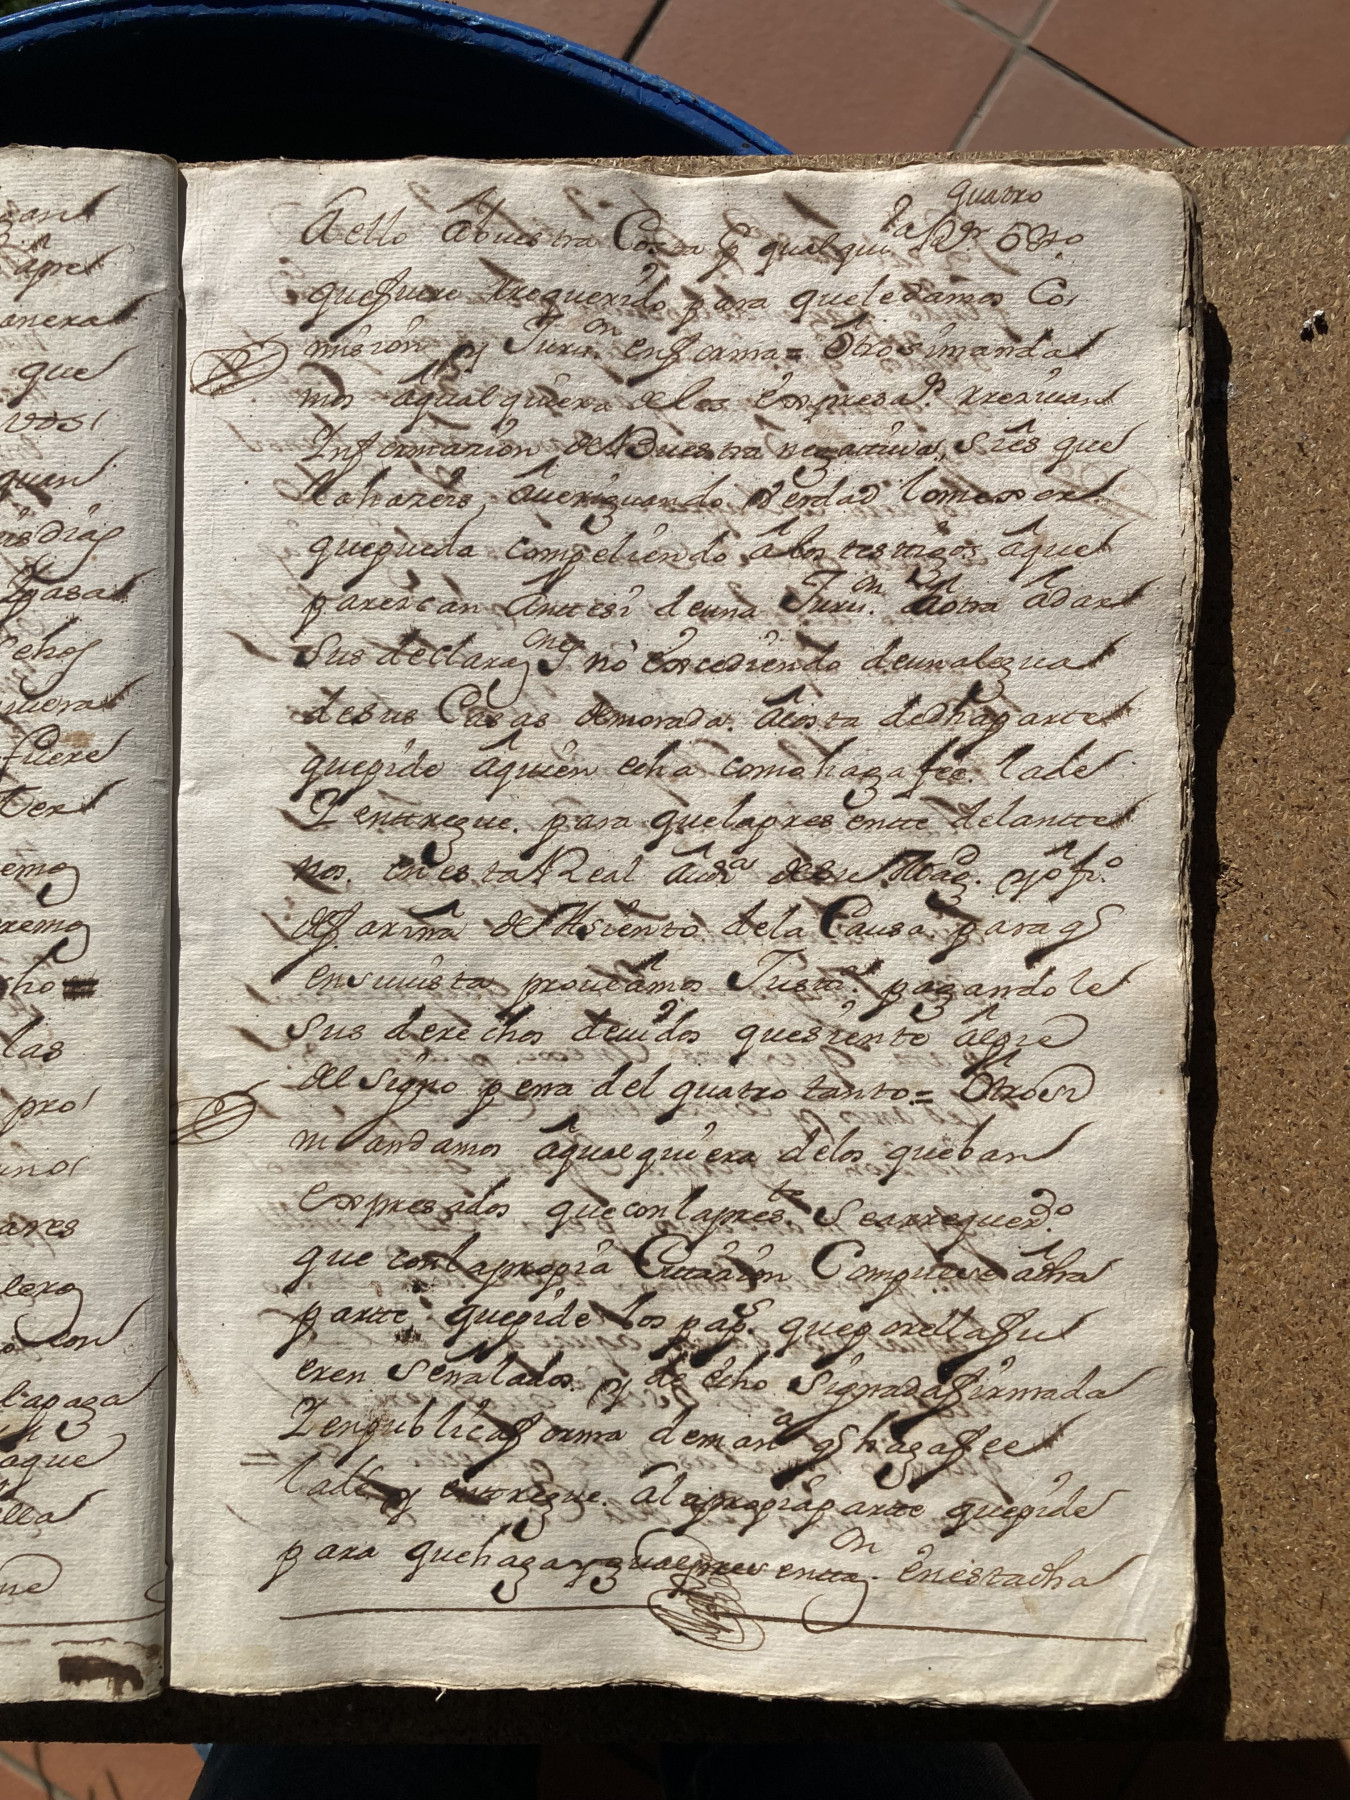 quatro
Aello Abuestra Costa p.r qualqui.ra
quefuere rrequerido para queledamos Co
mision y Juru.on enforma = Otrosimanda
mos aqualquiera delos expresa.os rrezivan
Informazion deBuestra negatiua, sies que
lahazeis, Aueriguando Verdad lomexor
quepueda compeliendo alos testigos aque
parezcan Anttesi deuna Juru.on aotra adar
Sus declaraznes no excediendo deunalegua
desus Casas demorada. Acosta dedhaparte
quepide aquien echa comohagafee. lade
Y enttregue. para quelapresentte delantte
nos. en esta Real Aud.a desu Mag.
defarina deAsiento dela Causa paraq
ensuuista proueamos Just.a pagandole
Sus derechos deuidos quesiente alpie
del signo pena del quatro tanto = Otrosi
mandamos aqualquiera delos queban
expresados queconlapres.te Searrequerd.o
que conlapropia Cittazion Compulse adha
partte quepide los pap.s queporellafu
eren Señalados. y de echo Signadafirmada
Y enpublicaforma deman.a q hagafee
lade y enttregue. Alapropiapartte quepide
para quehaga presenttaz.on enestadha